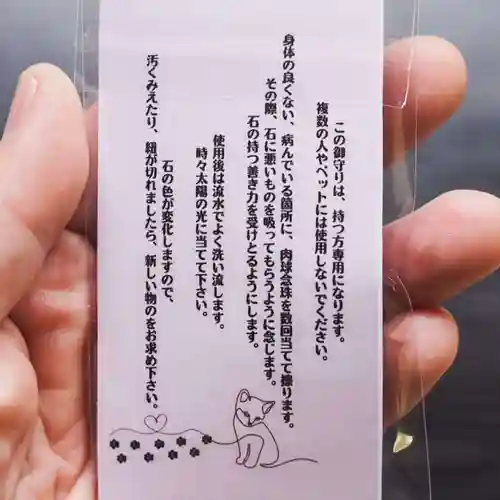 この御守りは、持つ方専用になります。
複数の人やペットには使用しないでください。
身体の良くない、病んでいる箇所に、肉球念珠を数回当てて擦ります。
その際、石に悪いものを吸ってもらうように念じます。
石の持つ善き力を受けとるようにします。
使用後は流水でよく洗い流します。
時々太陽の光に当てて下さい。
石の色が変化しますので、
汚くみえたり、紐が切れましたら、新しい物のをお求め下さい。